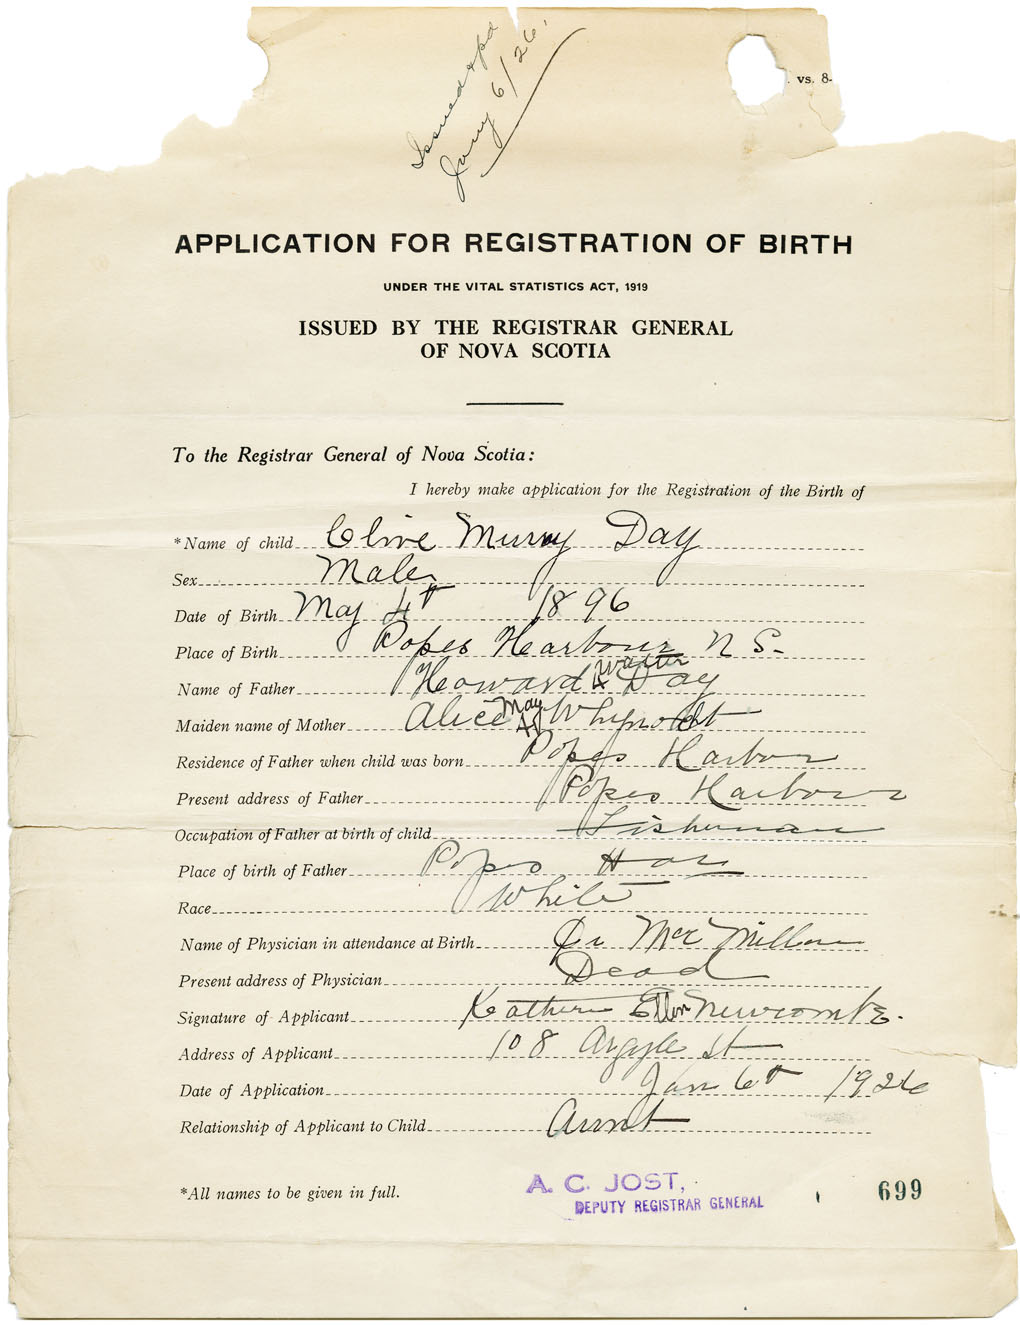 Issued & pd
Jany 6/26.
vs. 8-
APPLICATION FOR REGISTRATION OF BIRTH
UNDER THE VITAL STATISTICS ACT, 1919
ISSUED BY THE REGISTRAR GENERAL
OF NOVA SCOTIA
To the Registrar General of Nova Scotia:
I hereby make application for the Registration of the Birth of
*Name of child Clive Murray Day
Sex Male
Date of Birth May 4th 1896
Place of Birth Popes Harbour N S.
Name of Father Howard Walter Day
Maiden name of Mother Alice May Whynott
Residence of Father when child was born Popes Harbour
Present address of Father Popes Harbour
Occupation of Father at birth of child Fisherman
Place of birth of Father Popes Har
Race White
Name of Physician in attendance at Birth Dr McMillan
Present address of Physician Dead
Signature of Applicant Kathern Ellen Newcombe.
Address of Applicant 108 Argyle St
Date of Application Jan 6th 1926
Relationship of Applicant to Child Aunt
*All names to be given in full.
A. C. JOST,
DEPUTY REGISTRAR GENERAL
699